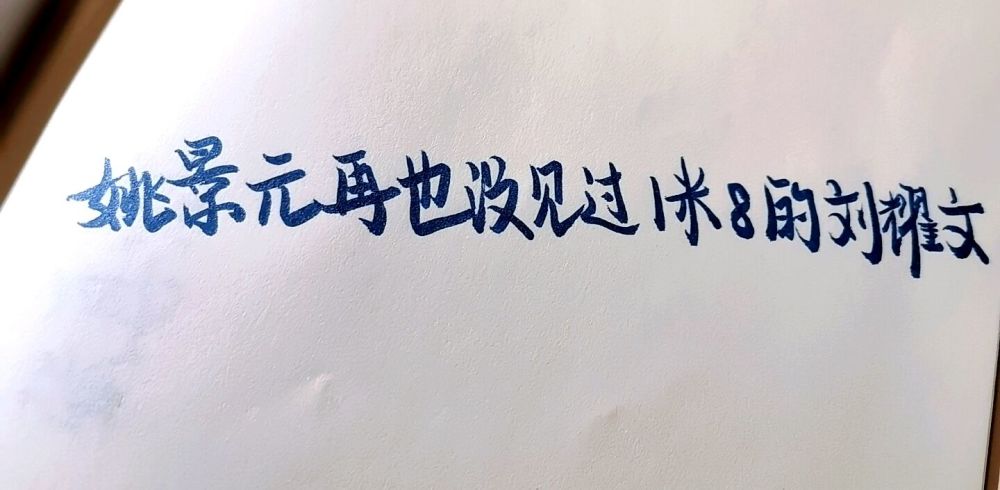 姚景元再也没见过1米8的刘耀文